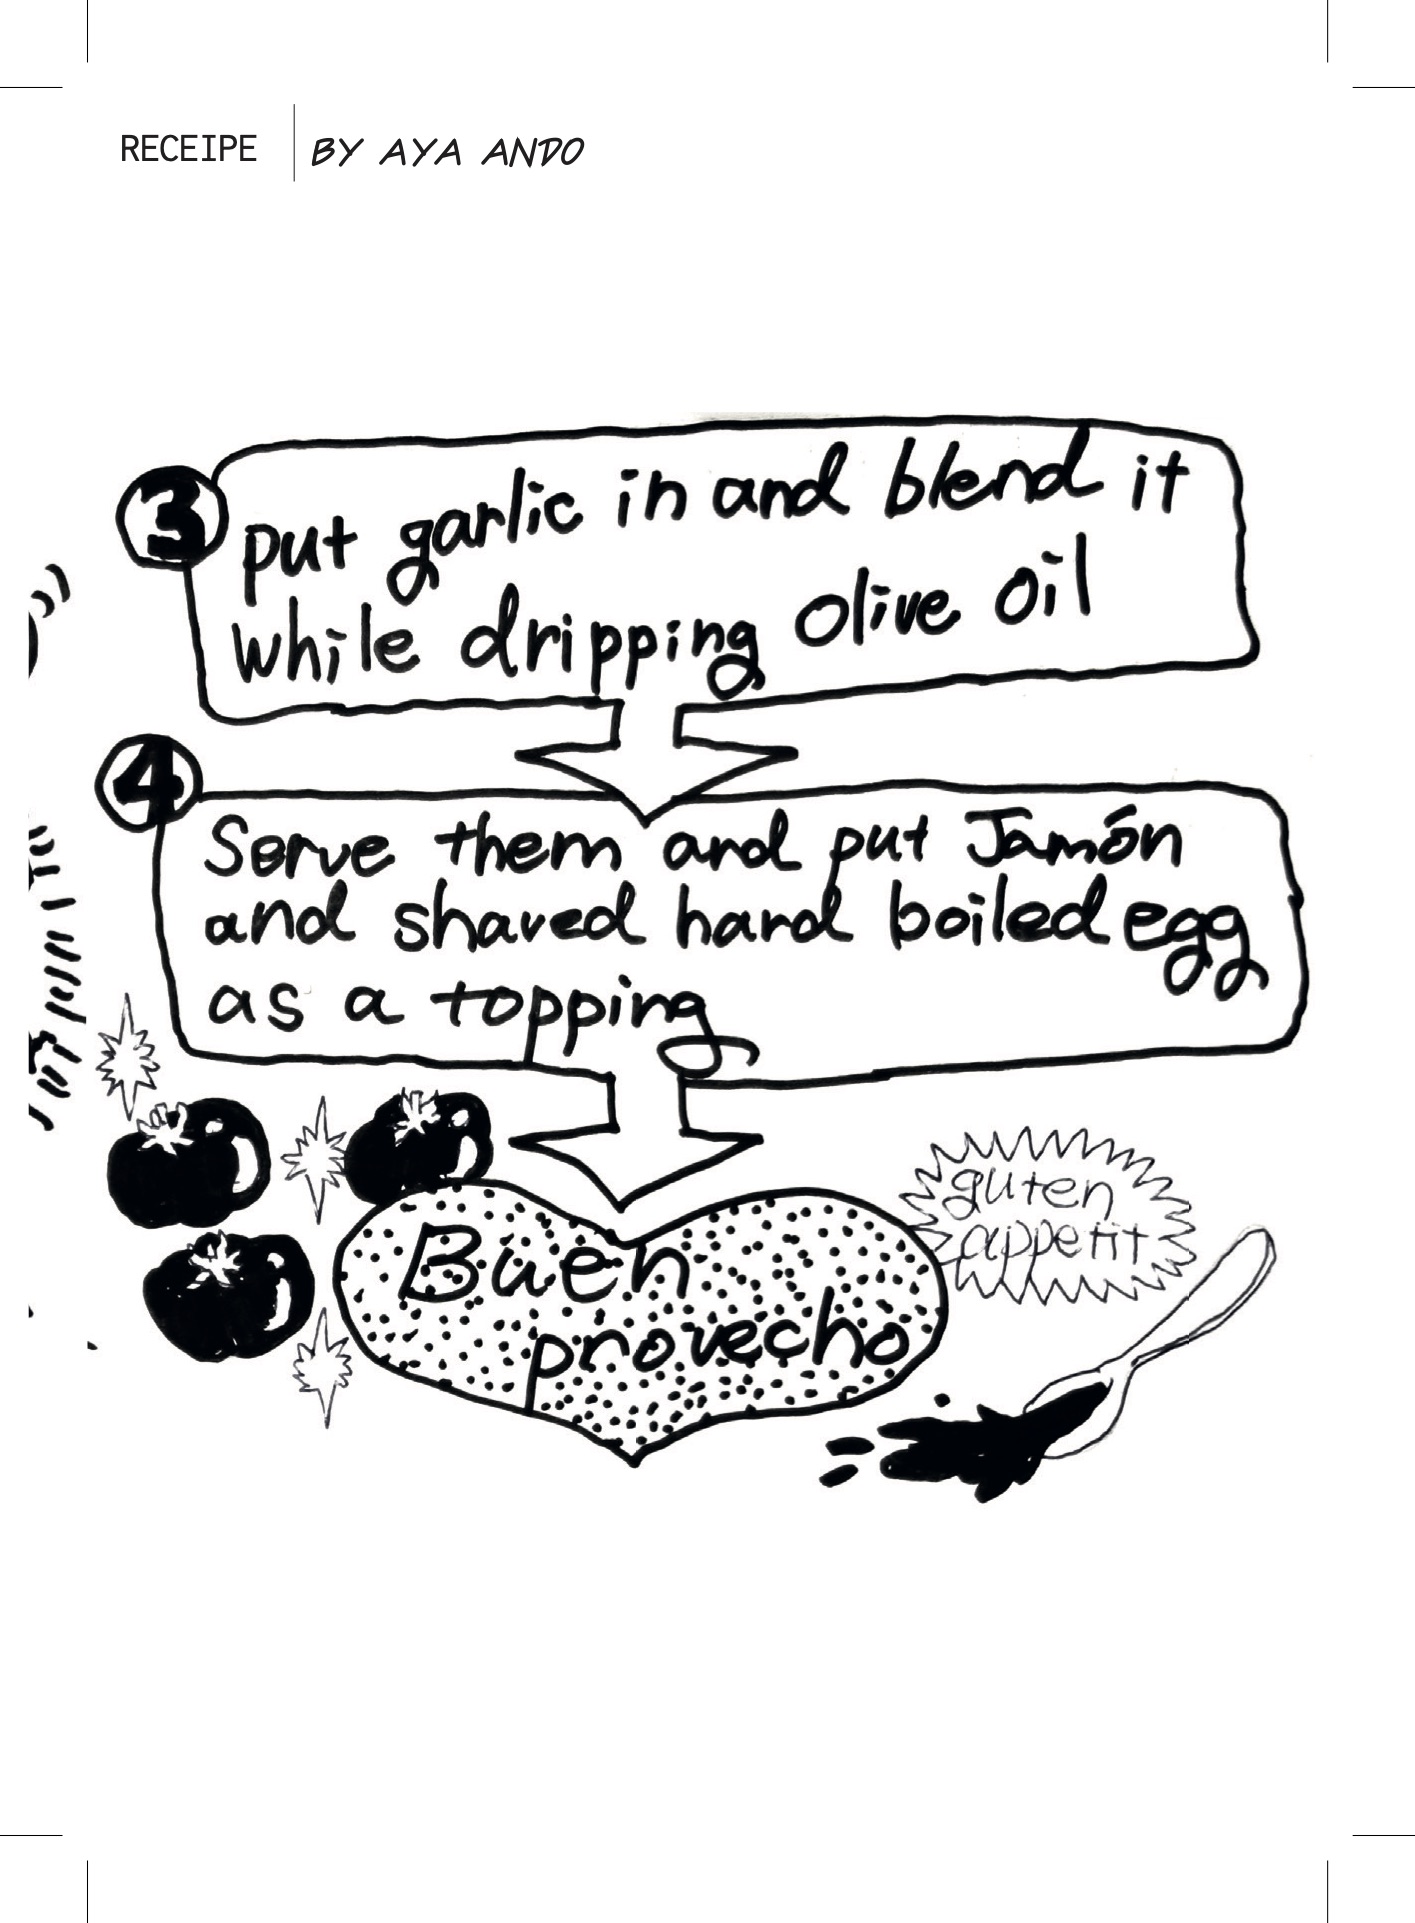 RECEIPE
BY AYA ANDO
3
put garlic in and blend it
while dripping olive oil
4
Serve them and put Jamón
and shaved hard boiled egg
as a topping
Buen
provecho
guten
appetit